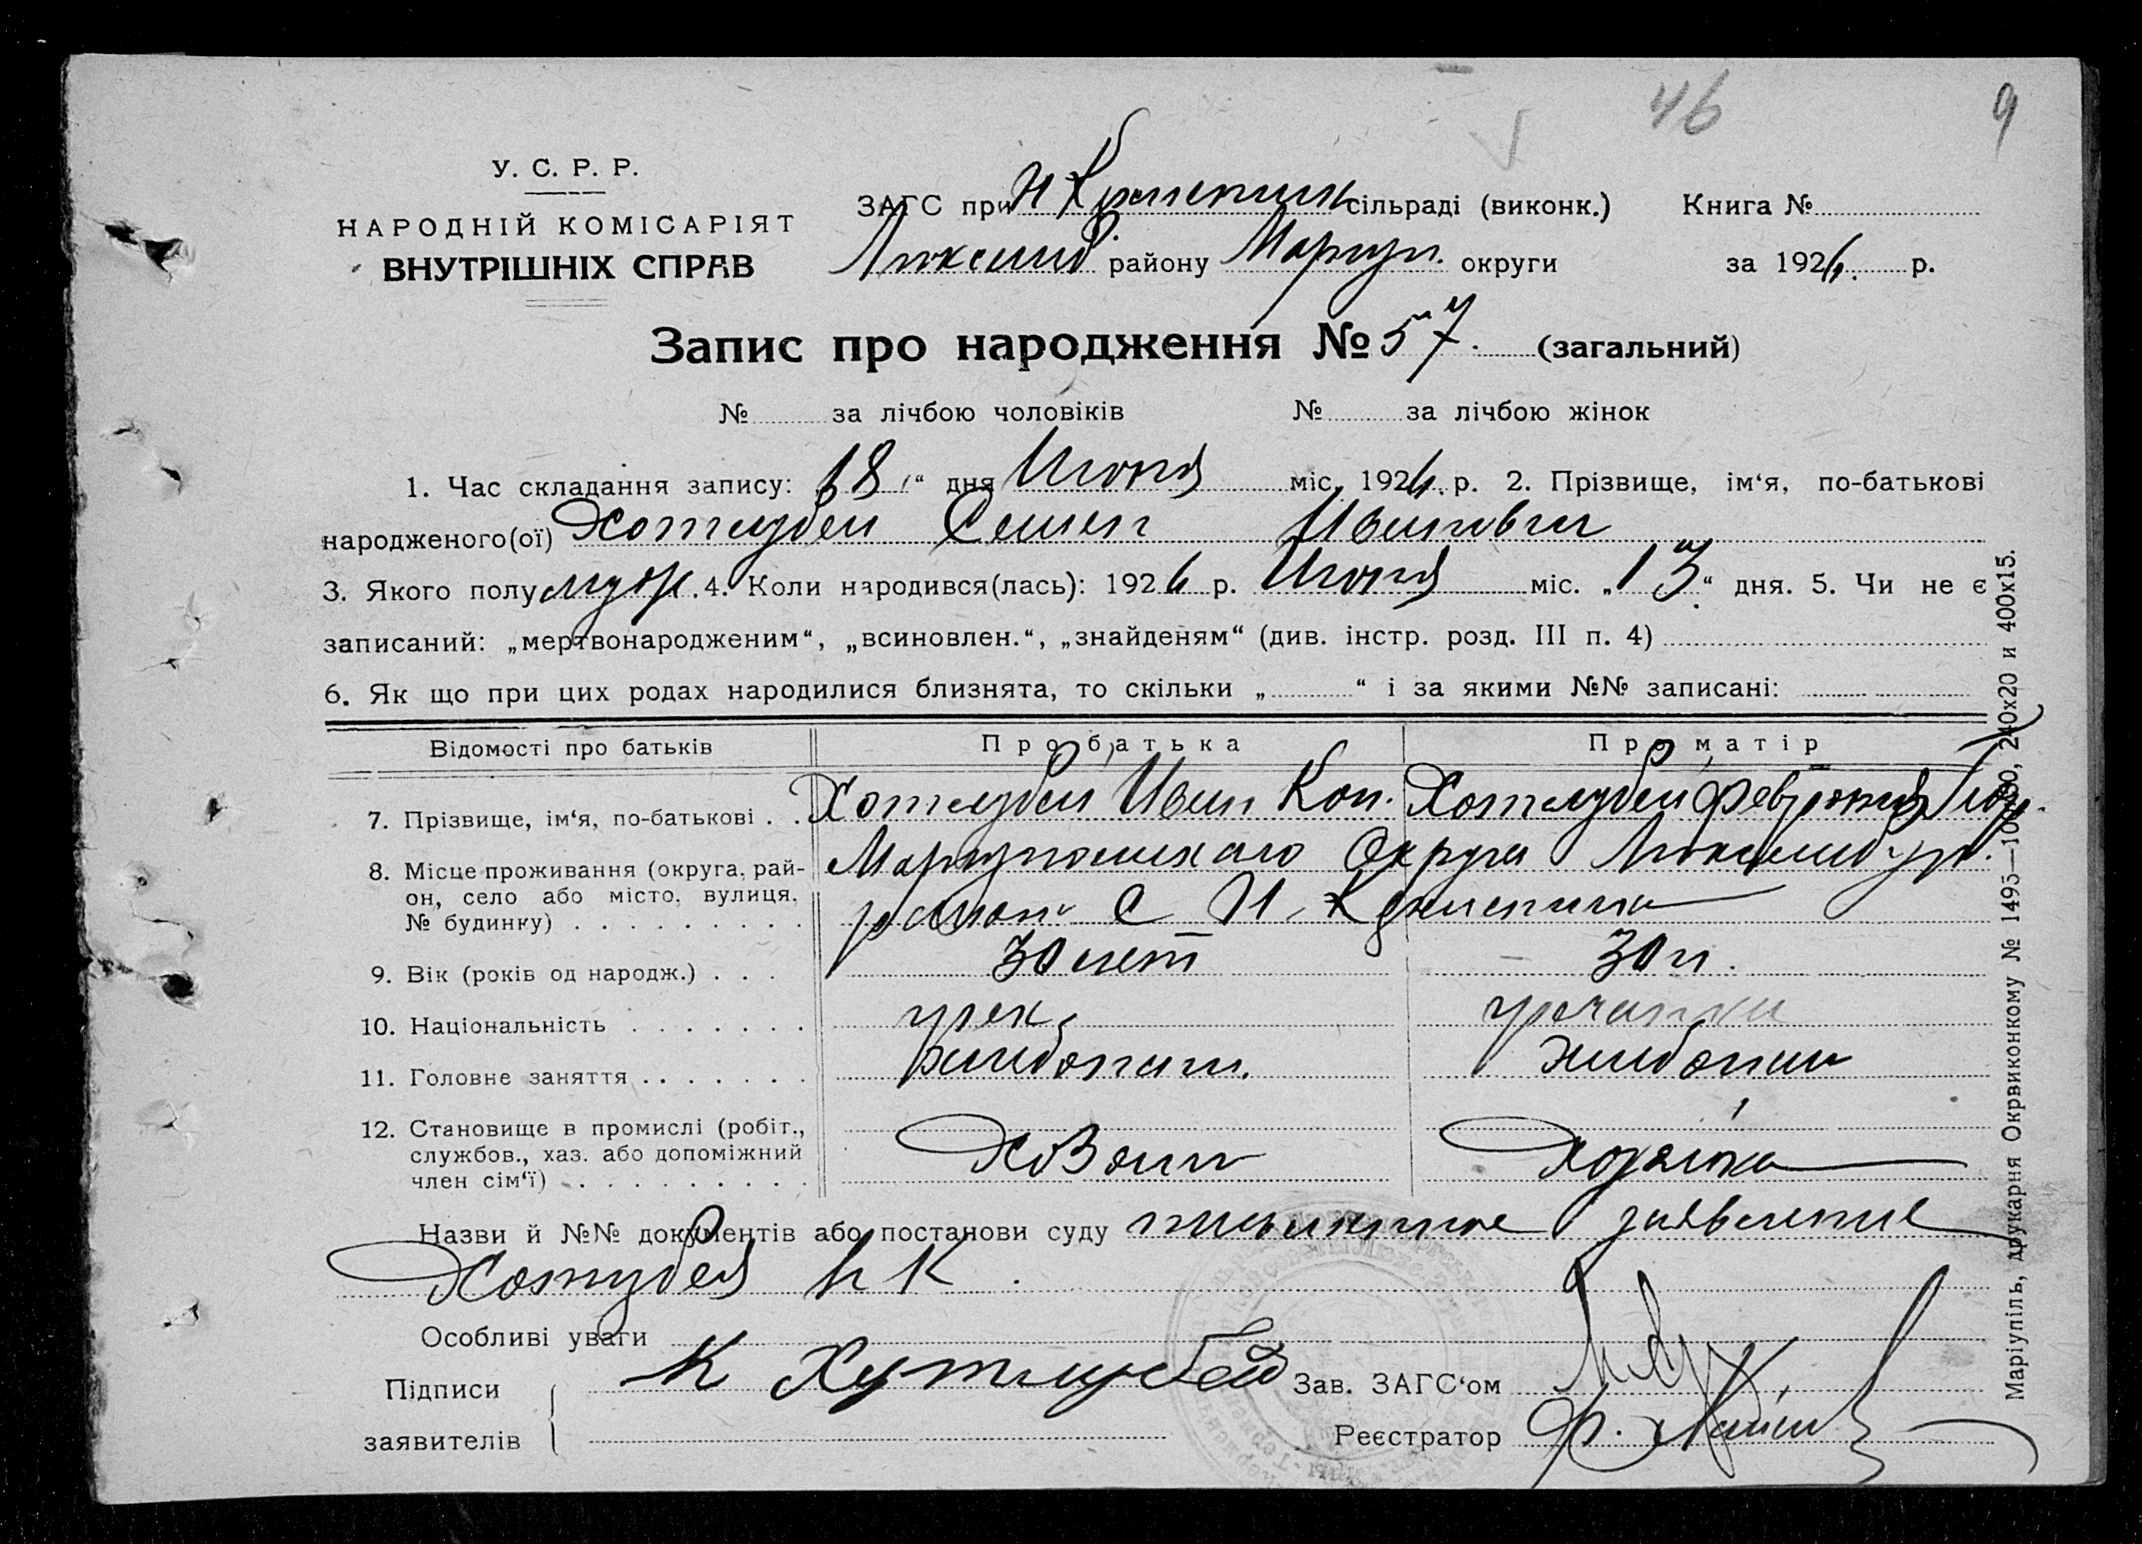 46 9
У. С. Р. Р.
НАРОДНІЙ КОМІСАРІЯТ
ВНУТРІШНІХ СПРАВ
ЗАГС при сільраді (виконк.) Книга №
району Мариуп. округи за 1926 р.
Запис про народження № 57. (загальний)
№ за лічбою чоловіків № за лічбою жінок
1. Час складання запису: 18 “ дня Июня міс. 1926 р. 2. Прізвище, ім‘я, по-батькові
народженого(ої) Хотлубей Семен Иванович
3. Якого полу муж. 4. Коли народився(лась): 1926 р. Июня міс. „ 13 “ дня. 5. Чи не є
записаний: „мертвонародженим“, „всиновлен.“, „знайденям“ (див. інстр. розд. III п. 4)
6. Як що при цих родах народилися близнята, то скільки „ “ і за якими №№ записані:
Відомості про батьків Про батька Про матір
7. Прізвище, ім‘я, по-батькові . . Хотлубей Иван Кон. Хотлубей Феврония
8. Місце проживання (округа, рай-
он, село або місто, вулиця,
№ будинку) Мариупольского Округа
район с Н.
9. Вік (років од народж.) . . . 30 лет 30 л.
10. Національність грек гречанка
11. Головне заняття хлебопаш. хлебопаш
12. Становище в промислі (робіт.,
службов., хаз. або допоміжний
член сім‘ї) Хозяин Хозяйка
Назви й №№ документів або постанови суду письменное заявление
Хотлубея И К
Особливі уваги
Підписи К Хутлубей Зав. ЗАГС‘ом
заявителів Реєстратор
Маріупіль, друкарня Окрвиконкому № 1495—10000, 240х20 и 400х15.